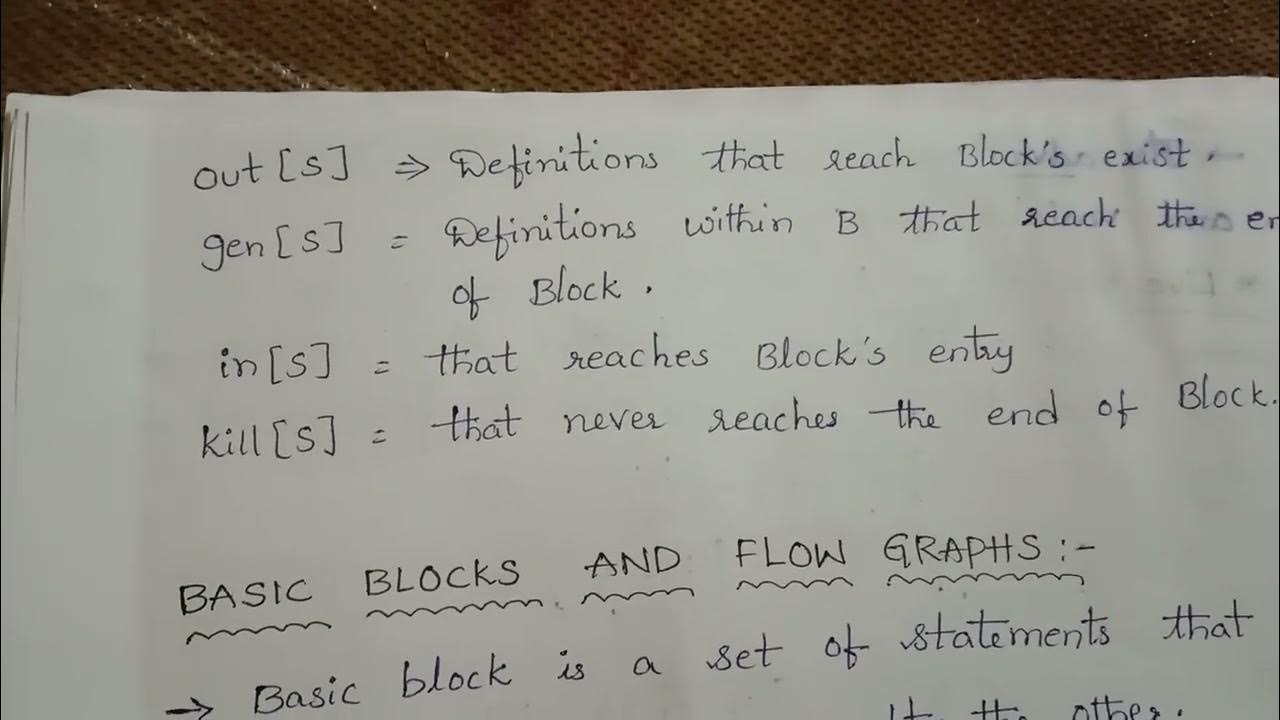 out [s] ⇒ Definitions that reach Block's exist.
gen [s] = Definitions within B that reach the en
of Block.
in [s] = that reaches Block's entry
kill [s] = that never reaches the end of Block.
BASIC BLOCKS AND FLOW GRAPHS :-
→ Basic block is a set of statements that
the other.